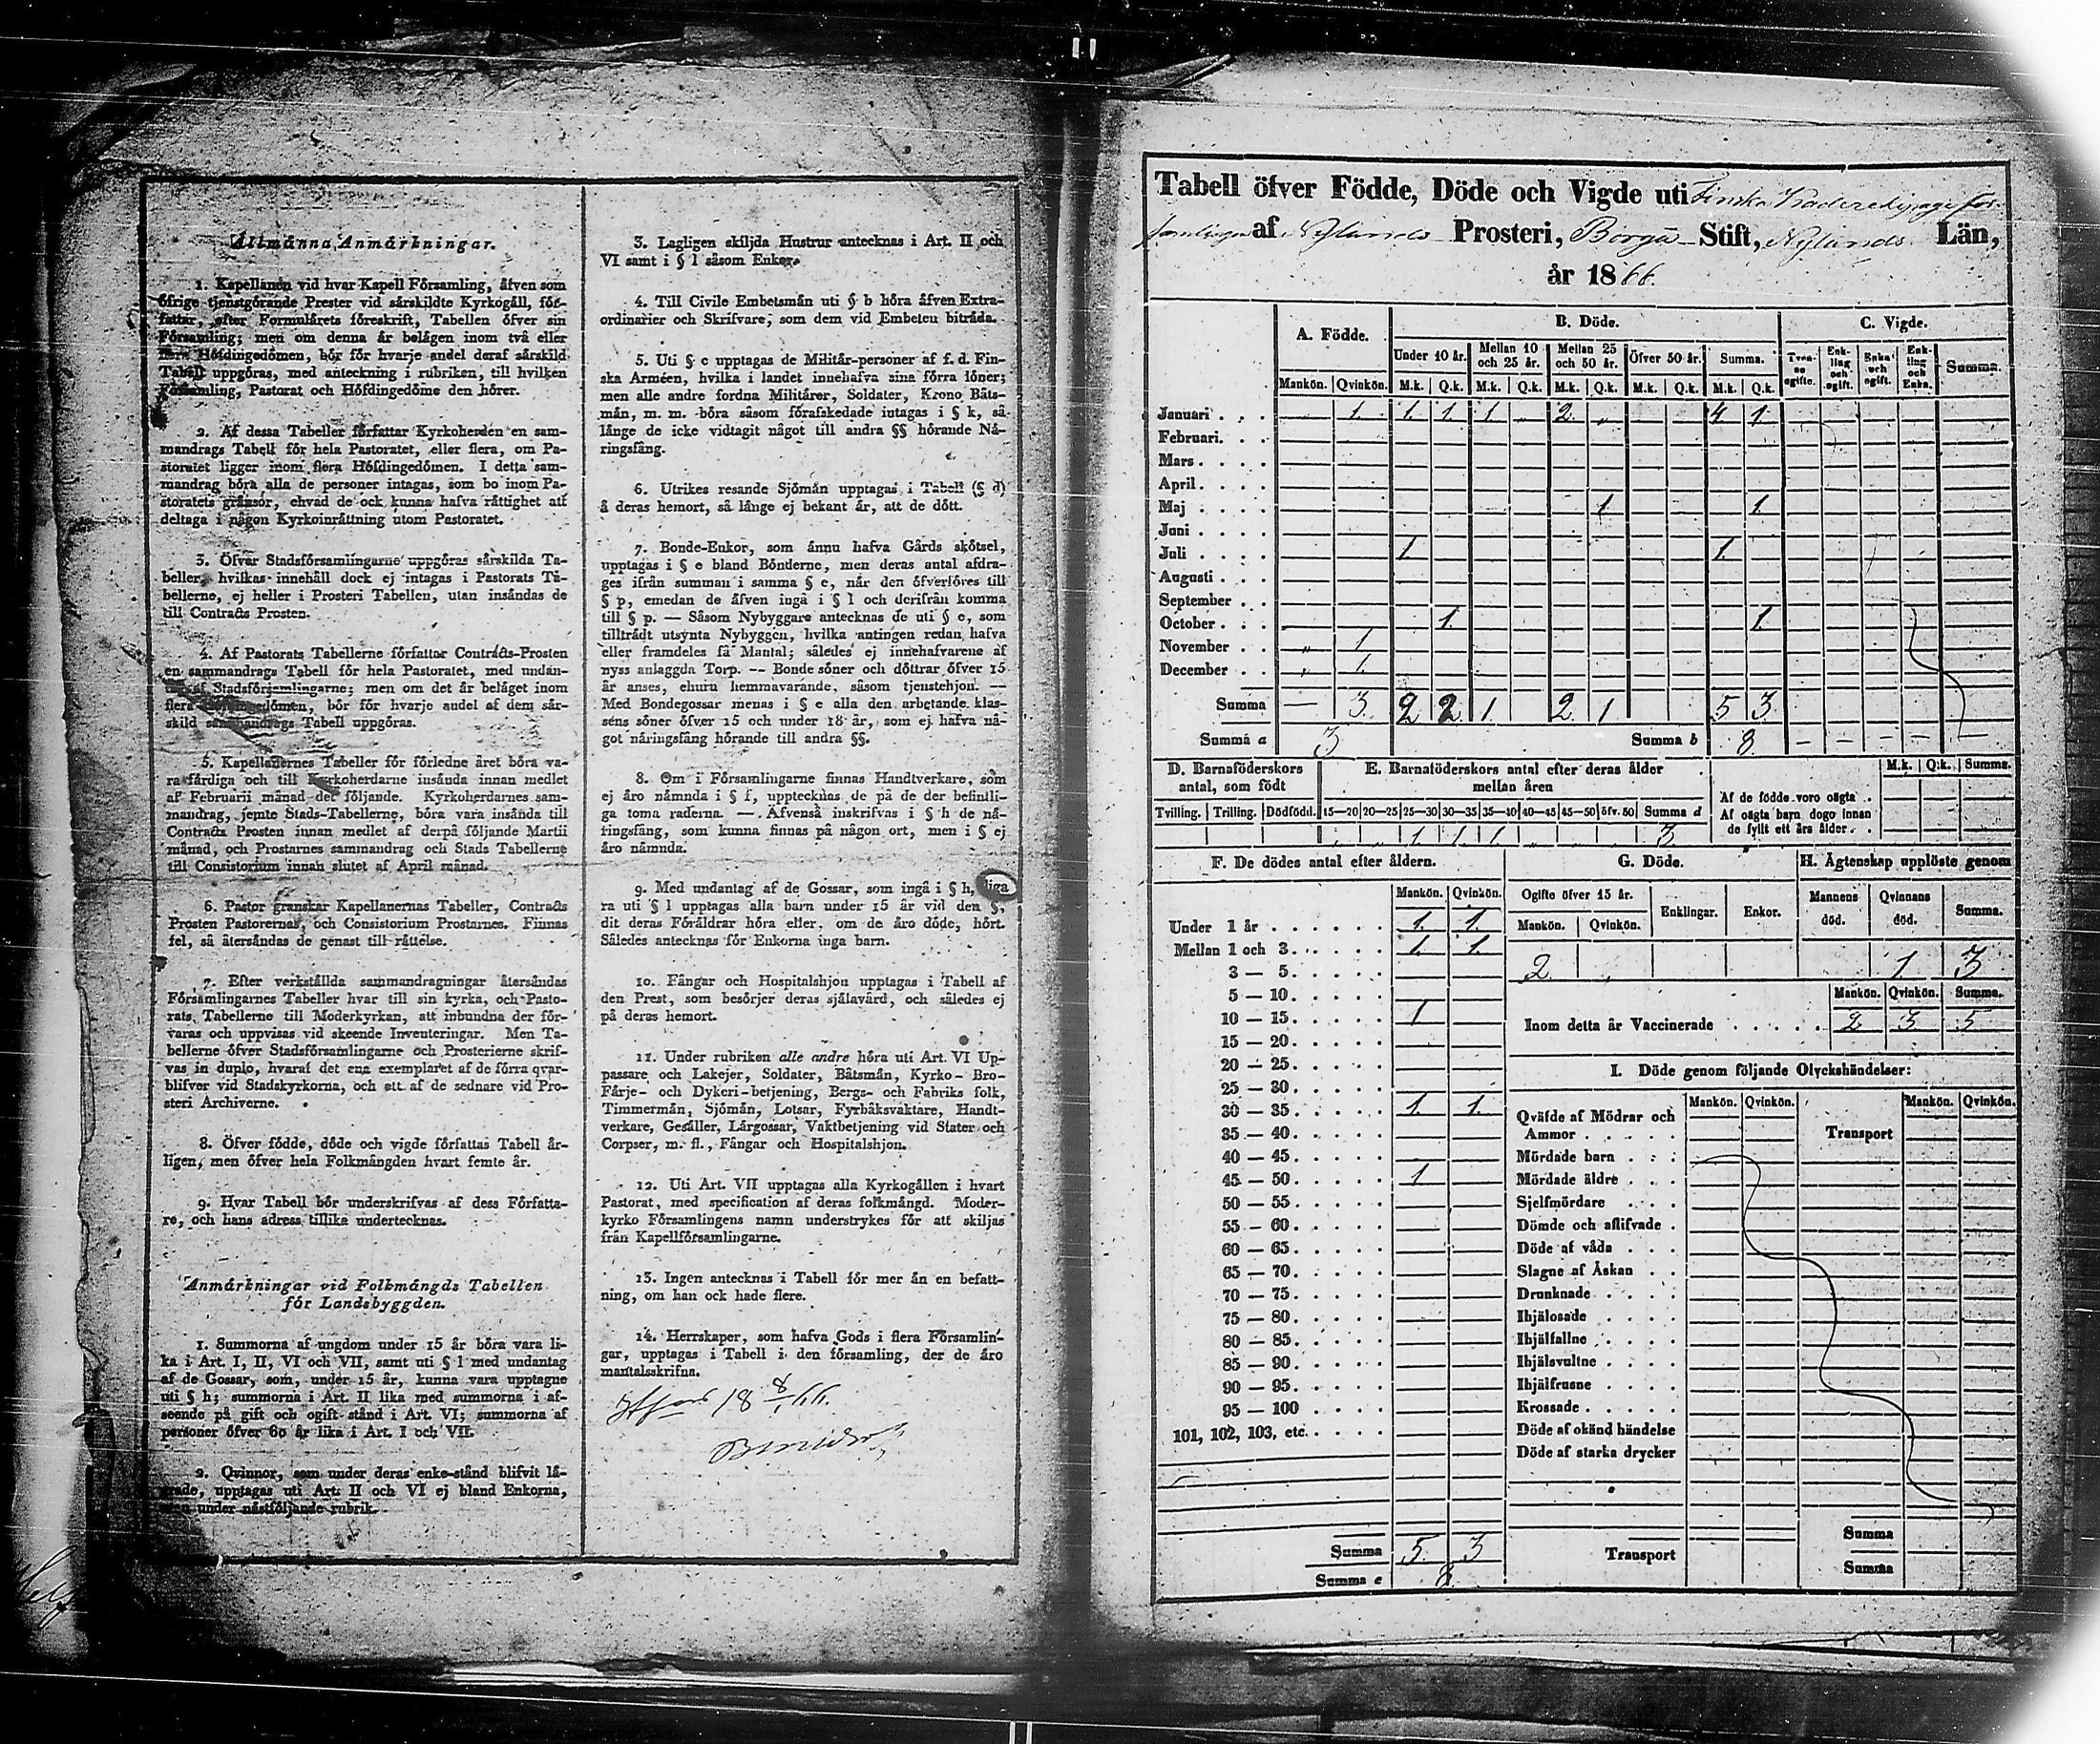 Allmånna Anmårkningar.
1. Kapellanen vid hvar Kapell Församling, åfven som
öfrige tjenstgörande Prester vid sårskildte Kyrkogåll, för-
fattar, efter Formulårets föreskrift, Tabellen öfver sin
Församling; men om denna år belågen inom två eller
flera Höfdingedömen, bör för hvarje andel deraf sårskild
Tabell uppgöras, med anteckning i rubriken, till hvilken
Församling, Pastorat och Höfdingedöme den hörer.
2. Af dessa Tabeller författar Kyrkoherden en sam-
mandrags Tabell för hela Pastoratet, eller flera, om Pa-
storatet ligger inom flera Höfdingedömen. I detta sam-
mandrag böra alla de personer intagas, som bo inom Pa-
storatets grånsor, ehvad de ock kunna hafva råttighet att
deltaga i någon Kyrkoinråttning utom Pastoratet.
3. Öfver Stadsförsamlingarne uppgöras sårskilda Ta-
beller, hvilkas innehåll dock ej intagas i Pastorats Ta-
bellerne, ej heller i Prosteri Tabellen, utan insåndas de
till Contracts Prosten.
4. Af Pastorats Tabellerne författar Contracts-Prosten
en sammandrags Tabell för hela Pastoratet, med undan-
tag af Stadsförsamlingarne; men om det år belåget inom
flera Höfdingedömen, bör för hvarje andel af dem sår-
skild sammandrags Tabell uppgöras.
5. Kapellanernes Tabeller för förledne året böra va-
ra fårdiga och till Kyrkoherdarne insånda innan medlet
af Februarii månad det följande. Kyrkoherdarnes sam-
mandrag, jemte Stads-Tabellerne, böra vara insånda till
Contracts Prosten innan medlet af derpå följande Martii
månad, och Prostarnes sammandrag och Stads Tabellerne
till Consistorium innan slutet af April månad.
6. Pastor granskar Kapellanernas Tabeller, Contracts
Prosten Pastorernas, och Consistorium Prostarnes. Finnas
fel, så återsåndas de genast till råttelse.
7. Efter verkstållda sammandragningar återsåndas
Församlingarnes Tabeller hvar till sin kyrka, och Pasto-
rats Tabellerne till Moderkyrkan, att inbundna der för-
varas och uppvisas vid skeende Inventeringar. Men Ta-
bellerne öfver Stadsförsamlingarne och Prosterierne skrif-
vas in duplo, hvaraf det ena exemplaret af de förra qvar-
blifver vid Stadskyrkorna, och ett af de sednare vid Pro-
steri Archiverne.
8. Öfver födde, döde och vigde författas Tabell år-
ligen, men öfver hela Folkmångden hvart femte år.
9. Hvar Tabell bör underskrifvas af dess Författa-
re, och hans adress tillika undertecknas.
Anmårkningar vid Folkmångds Tabellen
för Landsbyggden.
1. Summorna af ungdom under 15 år böra vara li-
ka i Art. I, II, VI och VII, samt uti § l med undantag
af de Gossar, som, under 15 år, kunna vara upptagne
uti § h; summorna i Art. II lika med summorna i af-
seende på gift och ogift stånd i Art. VI; summorna af
personer öfver 60 år lika i Art. I och VII.
2. Qvinnor, som under deras enke-stånd blifvit lå-
grade, upptagas uti Art. II och VI ej bland Enkorna,
utan under nåstföljande rubrik.
3. Lagligen skiljda Hustrur antecknas i Art. II och
VI samt i § l såsom Enkor.
4. Till Civile Embetsmån uti § b höra åfven Extra-
ordinarier och Skrifvare, som dem vid Embeten bitråda.
5. Uti § c upptagas de Militår-personer af f. d. Fin-
ska Arméen, hvilka i landet innehafva sina förra löner;
men alle andre fordna Militårer, Soldater, Krono Båts-
mån, m. m. böra såsom förafskedade intagas i § k, så
långe de icke vidtagit något till andra §§ hörande Nå-
ringsfång.
6. Utrikes resande Sjömån upptagas i Tabell (§ d)
å deras hemort, så långe ej bekant år, att de dött.
7. Bonde-Enkor, som ånnu hafva Gårds skötsel,
upptagas i § e bland Bönderne, men deras antal afdra-
ges ifrån summan i samma § e, når den öfverföres till
§ p, emedan de åfven ingå i § l och derifrån komma
till § p. — Såsom Nybyggare antecknas de uti § e, som
tilltrådt utsynta Nybyggen, hvilka antingen redan hafva
eller framdeles få Mantal; således ej innehafvarene af
nyss anlaggda Torp. — Bonde söner och döttrar öfver 15
år anses, ehuru hemmavarande, såsom tjenstehjon. —
Med Bondegossar menas i § e alla den arbetande klas-
sens söner öfver 15 och under 18 år, som ej hafva nå-
got nåringsfång hörande till andra §§.
8. Om i Församlingarne finnas Handtverkare, som
ej åro nåmnda i § f, uppteckņas de på de der befintli-
ga toma raderna. — Åfvenså inskrifvas i § h de nå-
ringsfång, som kunna finnas på någon ort, men i § ej
åro nåmnda.
9. Med undantag af de Gossar, som ingå i § h,
ra uti § l upptagas alla barn under 15 år vid den §,
dit deras Föråldrar höra eller, om de åro döde, hört.
Således antecknas för Enkorna inga barn.
10. Fångar och Hospitalshjon upptagas i Tabell af
den Prest, som besörjer deras sjålavård, och således ej
på deras hemort.
11. Under rubriken alle andre höra uti Art. VI Up-
passare och Lakejer, Soldater, Båtsmån, Kyrko- Bro-
Fårje- och Dykeri-betjening, Bergs- och Fabriks folk,
Timmermån, Sjömån, Lotsar, Fyrbåksvaktare, Handt-
verkare, Gesåller, Lårgossar, Vaktbetjening vid Stater och
Corpser, m. fl., Fångar och Hospitalshjon.
12. Uti Art. VII upptagas alla Kyrkogållen i hvart
Pastorat, med specification af deras folkmångd. Moder-
kyrko Församlingens namn understrykes för att skiljas
från Kapellförsamlingarne.
13. Ingen antecknas i Tabell för mer ån en befatt-
ning, om han ock hade flere.
14. Herrskaper, som hafva Gods i flera Församlin-
gar, upptagas i Tabell i den församling, der de åro
mantalsskrifna.
Tabell öfver Födde, Döde och Vigde uti Finska
af Nylands Prosteri, Borgå Stift, Nylands Län,
år 1866.
A. Födde. B. Döde. C. Vigde.
Under 10 år. Mellan 10 och 25 år. Mellan 25 och 50 år. Öfver 50 år. Summa. Tven-ne ogifte. Enk-ling och ogift. Enka och ogift. Enk-ling och Enka. Summa.
Mankön. Qvinkön. M.k. Q.k. M.k. Q.k. M.k. Q.k. M.k. Q.k. M.k. Q.k.
Januari . . . — 1. 1. 1. 1 „ 2. „ 4 1.
Februari. . .
Mars . . . .
April . . . .
Maj . . . . 1. 1.
Juni . . . .
Juli . . . . 1. 1.
Augusti . . .
September . .
October . . . 1. 1.
November . . „ 1.
December . . „ 1.
Summa — 3. 2 2 1 2. 1 5 3.
Summa a 3 Summa b 8. — — — — —
D. Barnaföderskors antal, som födt
E. Barnaföderskors antal efter deras ålder mellan åren
M.k. Q.k. Summa.
Trilling. Trilling. Dödfödd. 15—20 20—25 25—30 30—35 35—40 40—45 45—50 öfv. 50 Summa d
1. 1. 1. 3.
Af de födde voro oägta . .
Af oägta barn dogo innan
de fyllt ett års ålder . .
F. De dödes antal efter åldern.
Mankön. Qvinkön.
Under 1 år . . . . . . 1. 1.
Mellan 1 och 3. . . . . 1. 1.
3 — 5. . . . .
5 — 10. . . . .
10 — 15. . . . . 1
15 — 20. . . . .
20 — 25. . . . .
25 — 30. . . . .
30 — 35. . . . . 1. 1.
35 — 40. . . . .
40 — 45. . . . .
45 — 50. . . . . 1
50 — 55. . . . .
55 — 60. . . . .
60 — 65. . . . .
65 — 70. . . . .
70 — 75. . . . .
75 — 80. . . . .
80 — 85. . . . .
85 — 90. . . . .
90 — 95. . . . .
95 — 100 . . . .
101, 102, 103, etc. . . . .
Summa 5. 3
Summa e 8.
G. Döde.
Ogifte öfver 15 år. Enklingar. Enkor.
Mankön. Qvinkön.
2.
H. Ägtenskap upplöste genom
Mannens död. Qvinnans död. Summa.
1. 3
Mankön. Qvinkön. Summa.
Inom detta år Vaccinerade . . . . . . 2. 3. 5
I. Döde genom följande Olyckshändelser:
Mankön. Qvinkön. Mankön. Qvinkön.
Qväfde af Mödrar och
Ammor . . . . . Transport
Mördade barn . . .
Mördade äldre . . .
Sjelfmördare . . .
Dömde och aflifvade .
Döde af våda . . .
Slagne af Åskan . .
Drunknade . . . .
Ihjälosade . . . .
Ihjälfallne . . . .
Ihjälsvultne . . . .
Ihjälfrusne . . . .
Krossade . . . . .
Döde af okänd händelse
Döde af starka drycker
Summa
Transport
Summa